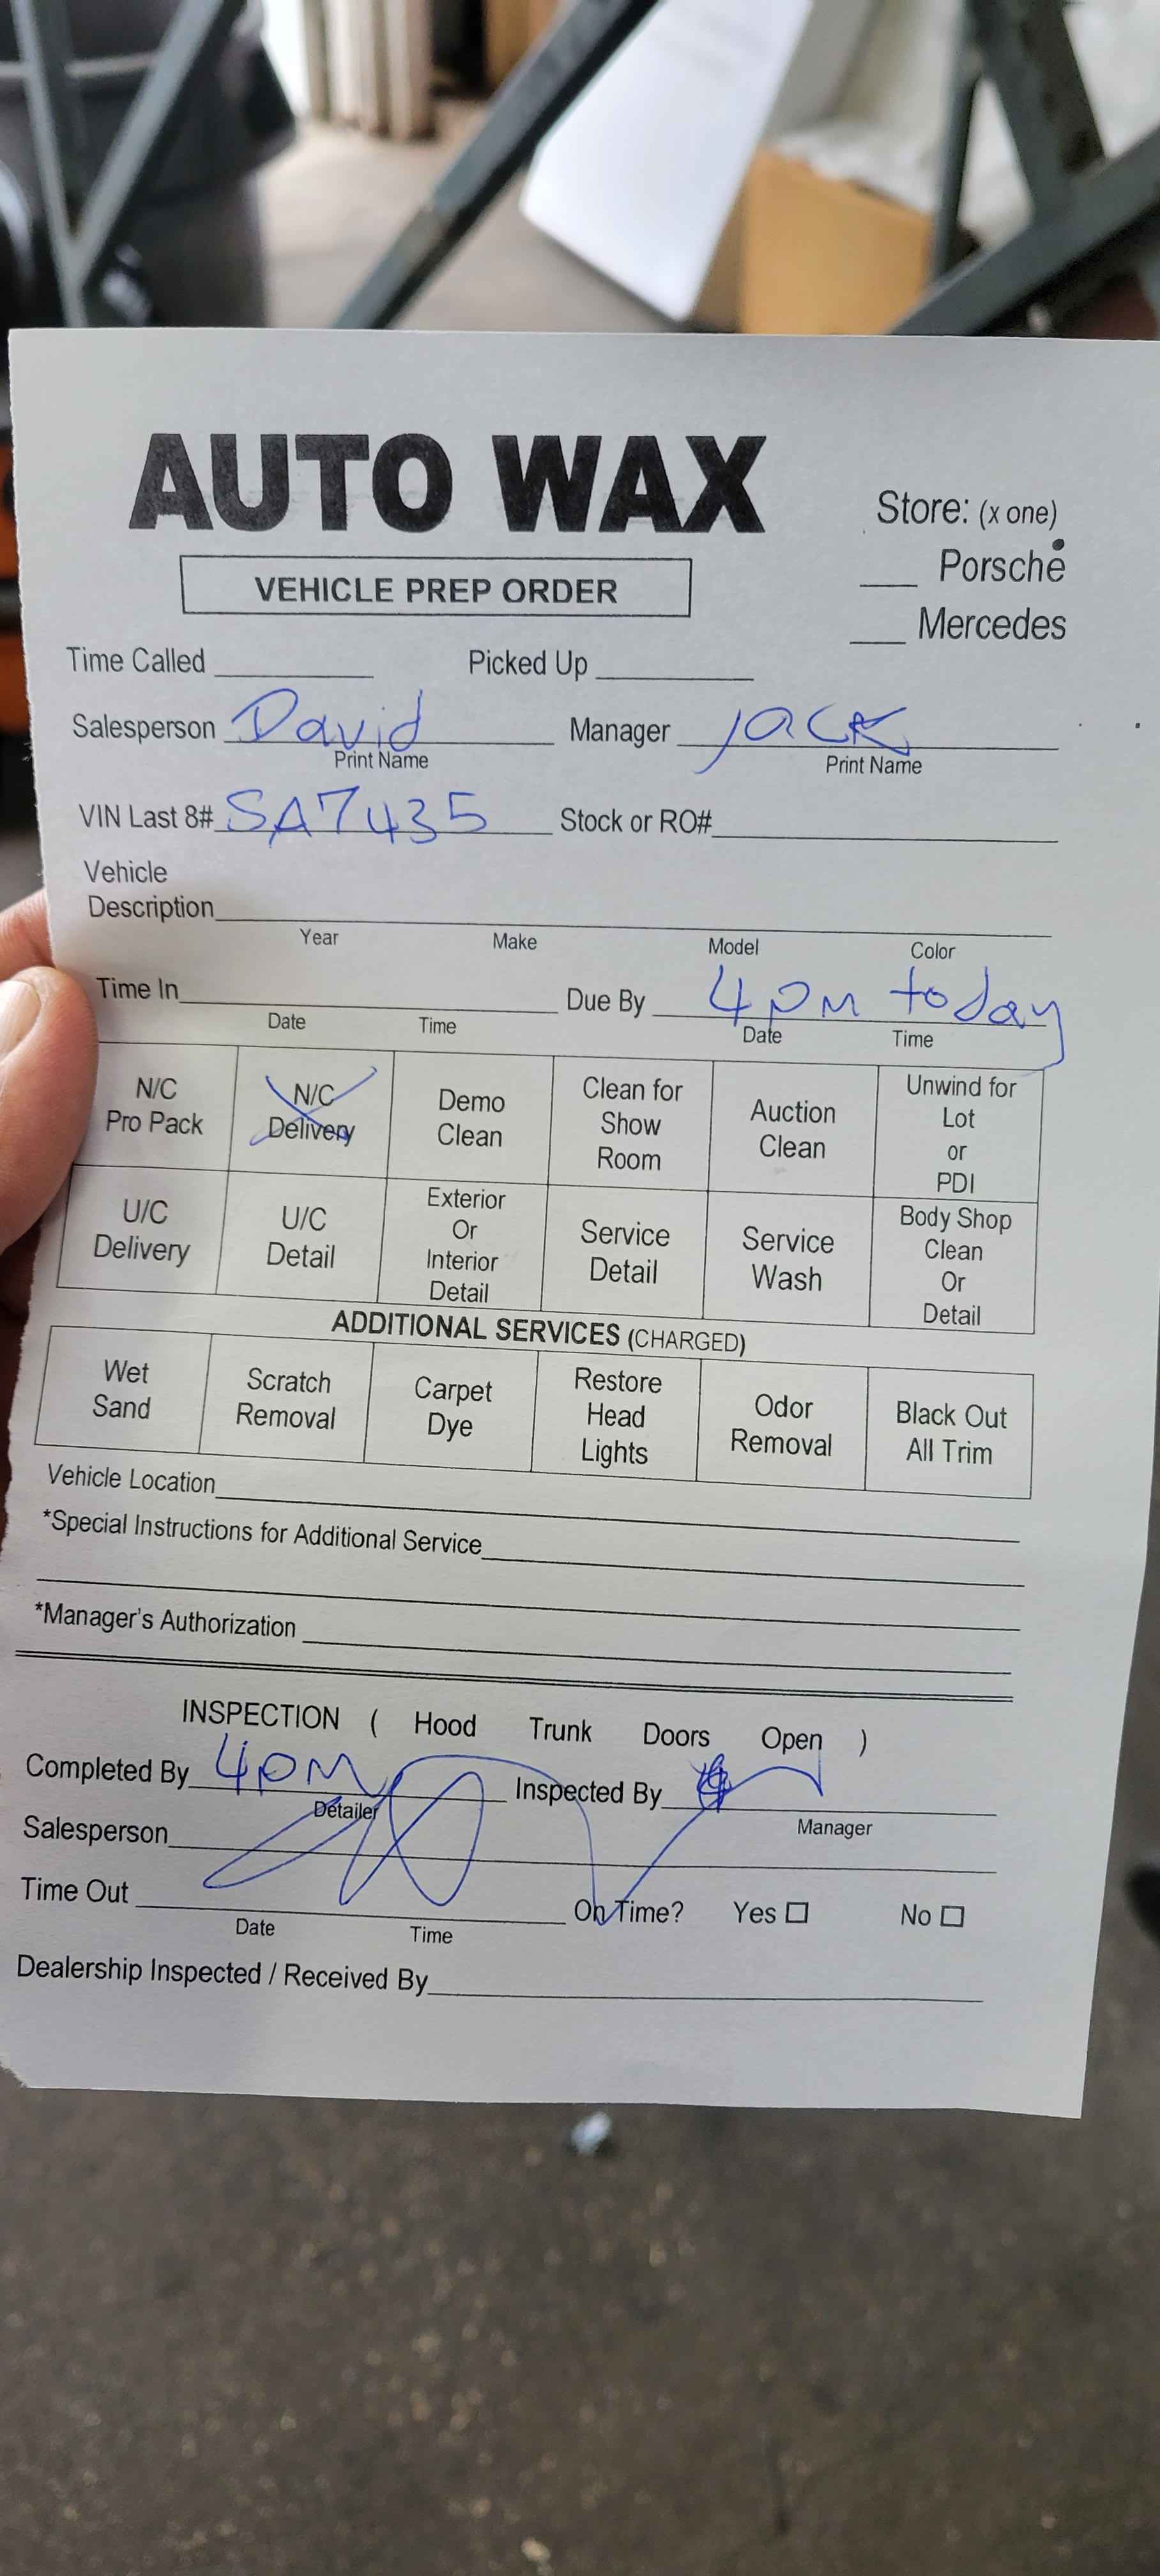 AUTO WAX
Store: (x one)
VEHICLE PREP ORDER
___ Porsche
___ Mercedes
Time Called ____________ Picked Up ____________
Salesperson David Manager JACK
Print Name Print Name
VIN Last 8# SA7435 Stock or RO# ____________
Vehicle
Description ____________
Year Make Model Color
Time In ____________ Due By 4PM today
Date Time Date Time
N/C Pro Pack N/C Delivery Demo Clean Clean for Show Room Auction Clean Unwind for Lot or PDI
U/C Delivery U/C Detail Exterior Or Interior Detail Service Detail Service Wash Body Shop Clean Or Detail
ADDITIONAL SERVICES (CHARGED)
Wet Sand Scratch Removal Carpet Dye Restore Head Lights Odor Removal Black Out All Trim
Vehicle Location ____________
*Special Instructions for Additional Service ____________
*Manager's Authorization ____________
INSPECTION ( Hood Trunk Doors Open )
Completed By 4PM Inspected By ____________
Detailer Manager
Salesperson ____________
Time Out ____________ On Time? Yes ☐ No ☐
Date Time
Dealership Inspected / Received By ____________